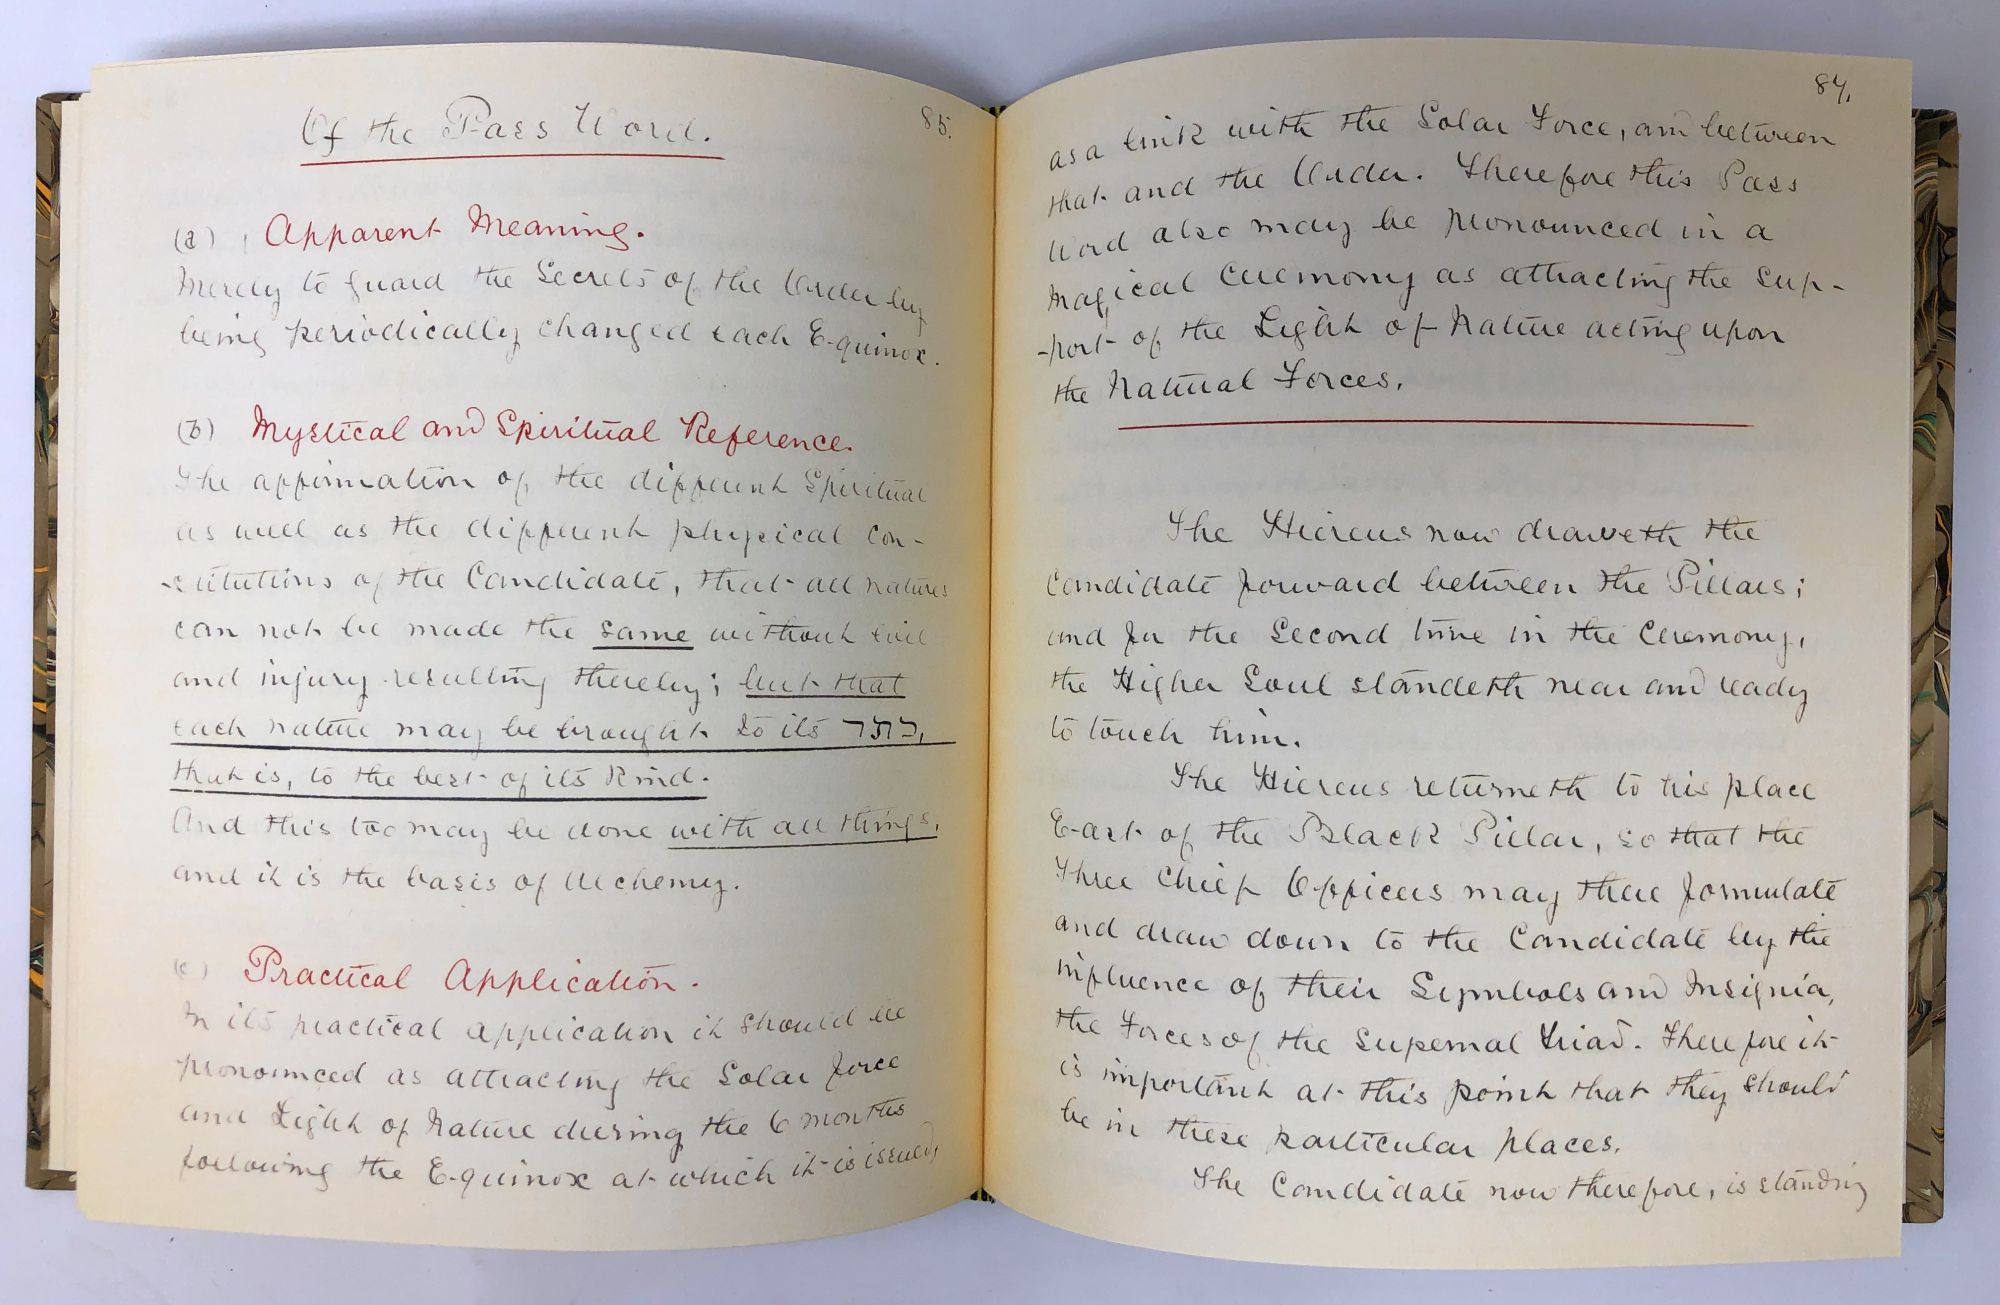 Of the Pass Word.
85.
(a) Apparent Meaning.
Merely to guard the Secrets of the Order by
being periodically changed each Equinox.
(b) Mystical and Spiritual Reference.
The affirmation of the different Spiritual
as well as the different physical con-
-stitutions of the Candidate, that all natures
can not be made the same without evil
and injury resulting thereby; but that
each nature may be brought to its כתר,
that is, to the best of its Kind.
And this too may be done with all things,
and it is the basis of Alchemy.
(c) Practical Application.
In its practical application it should be
pronounced as attracting the Solar force
and Light of Nature during the 6 months
following the Equinox at which it is issued,
84.
as a link with the Solar Force, and between
that and the Order. Therefore this Pass
Word also may be pronounced in a
Magical Ceremony as attracting the Sup-
-port of the Light of Nature acting upon
the Natural Forces.
The Hiereus now draweth the
Candidate forward between the Pillars;
and for the Second time in the Ceremony,
the Higher Soul standeth near and ready
to touch him.
The Hiereus returneth to his place
East of the Black Pillar, so that the
Three Chief Officers may there formulate
and draw down to the Candidate by the
influence of their Symbols and Insignia,
the Forces of the Supernal Triad. Therefore it
is important at this point that they should
be in these particular places.
The Candidate now therefore, is standing